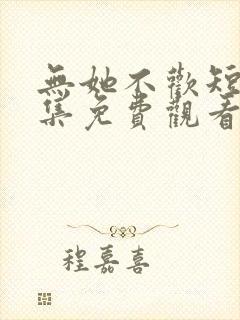 無她不歡短
集免費觀看
程嘉喜